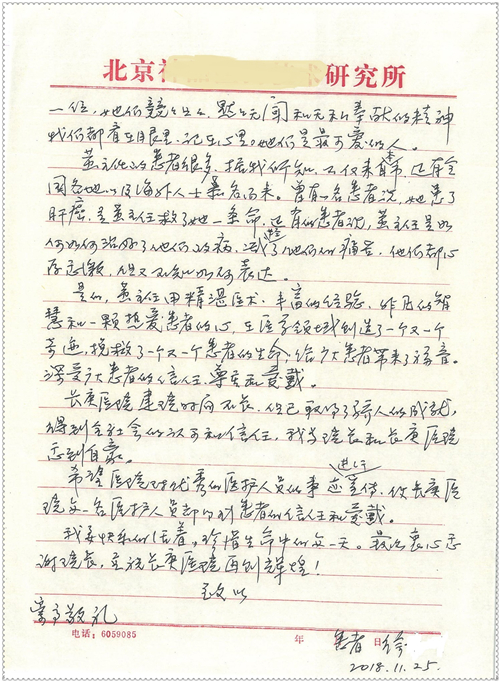 北京 研究所
一位，她们兢兢业业、默默无闻和无私奉献的精神
我们都看在眼里，记在心里。她们是最可爱的人。
董主任的患者很多，据我们所知，不仅来自本市，还有全
国各地以及海外人士慕名而来。曾有一名患者说，她患了
肝癌，是董主任救了她一条命，还有的患者说，董主任是如
何如何治好了他们的病，减轻了他们的痛苦，他们都心
存感激，但又不知如何表达。
是的，董主任用精湛医术、丰富的经验、非凡的智
慧和一颗热爱患者的心，在医学领域创造了一个又一个
奇迹，挽救了一个又一个患者的生命，给广大患者带来了福音。
深受广大患者的信任、尊重和爱戴。
长庚医院建院时间不长，但已取得了骄人的成就，
得到全社会的认可和信任，我为院长和长庚医院
感到自豪。
希望医院对优秀的医护人员的事迹进行宣传，使长庚医
院每一名医护人员都得到患者的信任和爱戴。
我要快乐的活着，珍惜生命中的每一天。最后衷心感
谢院长，至祝长庚医院再创辉煌！
致以
崇高敬礼
电话：6059085 年 日
患者 徐
2018.11.25.